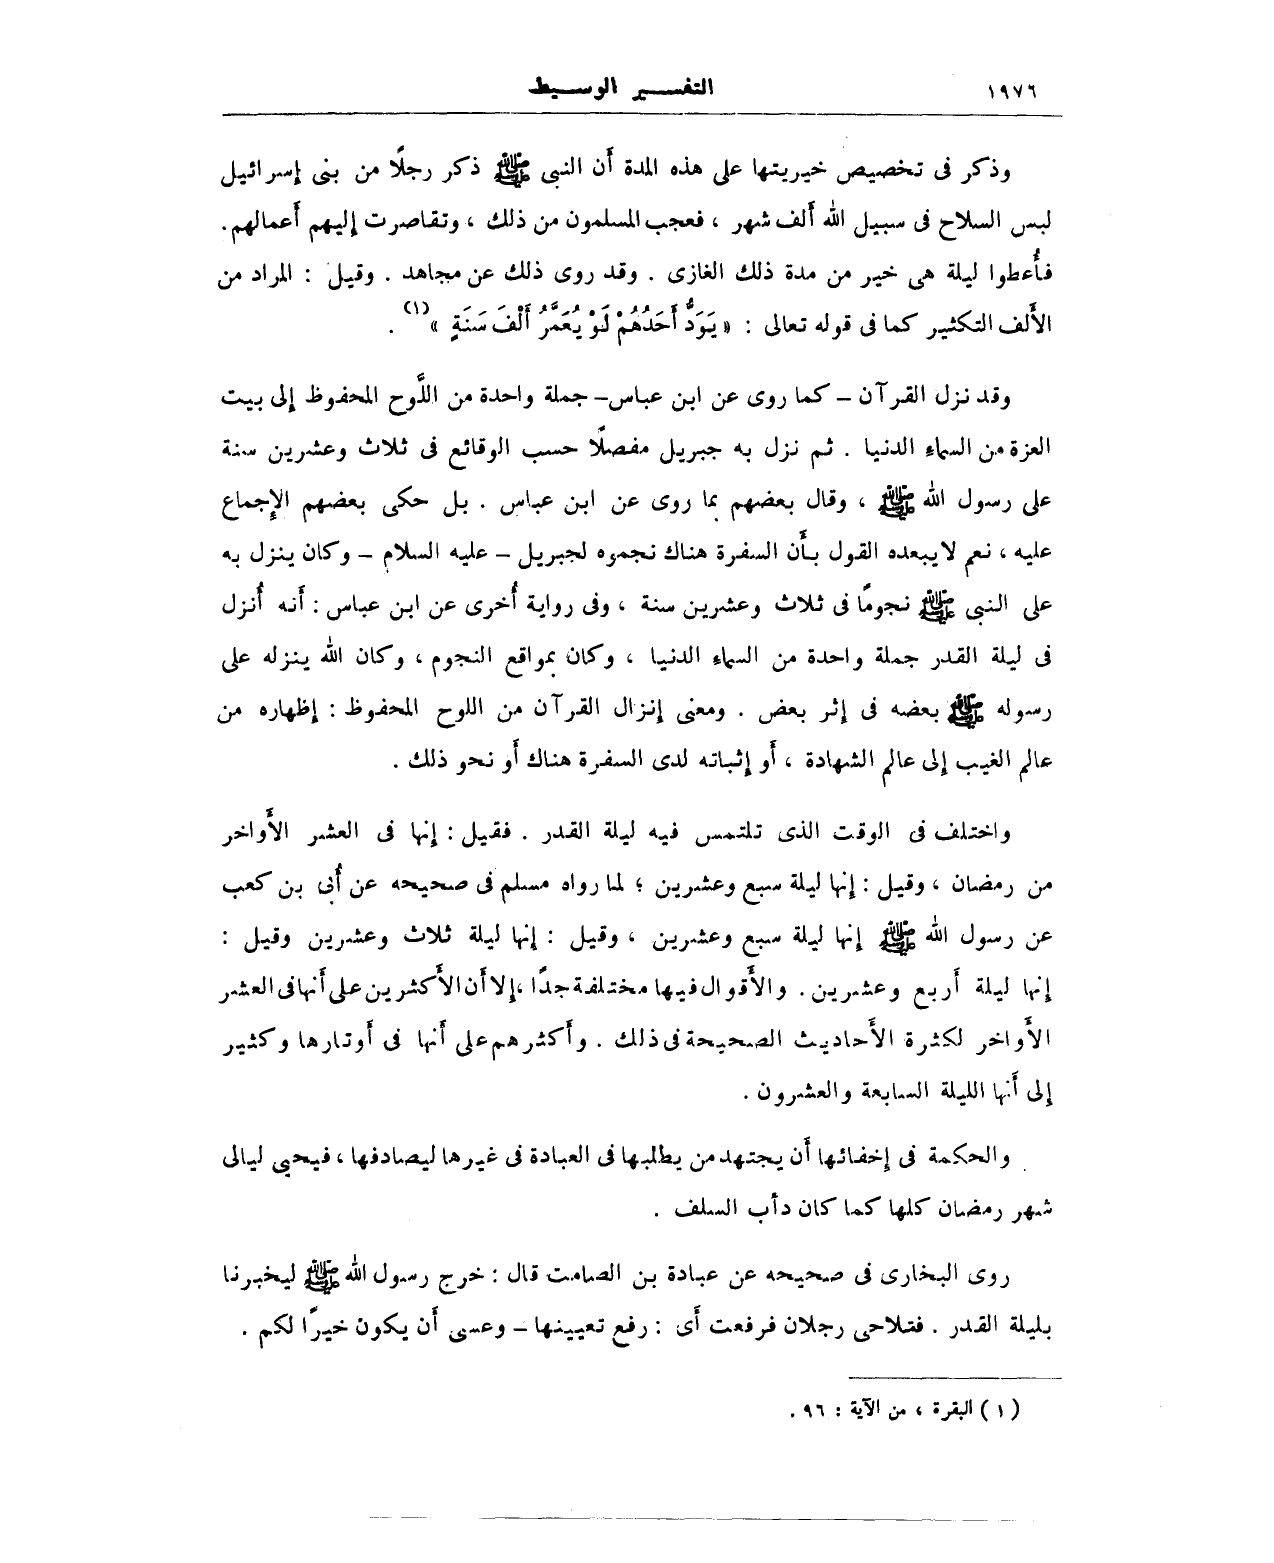 ١٩٧٦ التفسير الوسيط
وذكر فى تخصيص خيريتها على هذه المدة أَن النبى ﷺ ذكر رجلًا من بنى إسرائيل
لبس السلاح فى سبيل الله أَلف شهر ، فعجب المسلمون من ذلك ، وتقاصرت إليهم أَعمالهم.
فأُعطوا ليلة هى خير من مدة ذلك الغازى . وقد روى ذلك عن مجاهد . وقيل : المراد من
الأَلف التكثير كما فى قوله تعالى : « يَوَدُّ أَحَدُهُمْ لَوْ يُعَمَّرُ أَلْفَ سَنَةٍ »(١) .
وقد نزل القرآن – كما روى عن ابن عباس– جملة واحدة من اللَّوح المحفوظ إلى بيت
العزة من السماء الدنيا . ثم نزل به جبريل مفصلًا حسب الوقائع فى ثلاث وعشرين سنة
على رسول الله ﷺ ، وقال بعضهم بما روى عن ابن عباس . بل حكى بعضهم الإِجماع
عليه ، نعم لا يبعده القول بأَن السفرة هناك نجموه لجبريل – عليه السلام – وكان ينزل به
على النبى ﷺ نجومًا فى ثلاث وعشرين سنة ، وفى رواية أُخرى عن ابن عباس : أَنه أُنزل
فى ليلة القدر جملة واحدة من السماء الدنيا ، وكان بمواقع النجوم ، وكان الله ينزله على
رسوله ﷺ بعضه فى إثر بعض . ومعنى إنزال القرآن من اللوح المحفوظ : إظهاره من
عالم الغيب إلى عالم الشهادة ، أَو إثباته لدى السفرة هناك أَو نحو ذلك .
واختلف فى الوقت الذى تلتمس فيه ليلة القدر . فقيل : إنها فى العشر الأَواخر
من رمضان ، وقيل : إنها ليلة سبع وعشرين ؛ لما رواه مسلم فى صحيحه عن أُبى بن كعب
عن رسول الله ﷺ إنها ليلة سبع وعشرين ، وقيل : إنها ليلة ثلاث وعشرين وقيل :
إنها ليلة أَربع وعشرين. والأَقوال فيها مختلفة جدًّا ،إلا أَن الأَكثرين على أَنها فى العشر
الأَواخر لكثرة الأَحاديث الصحيحة فى ذلك . وأَكثرهم على أَنها فى أَوتارها وكثير
إلى أَنها الليلة السابعة والعشرون .
والحكمة فى إخفائها أَن يجتهد من يطلبها فى العبادة فى غيرها ليصادفها ، فيحيى ليالى
شهر رمضان كلها كما كان دأب السلف .
روى البخارى فى صحيحه عن عبادة بن الصامت قال : خرج رسول الله ﷺ ليخبرنا
بليلة القدر . فتلاحى رجلان فرفعت أَى : رفع تعيينها – وعسى أَن يكون خيرًا لكم .
(١) البقرة ، من الآية : ٩٦ .